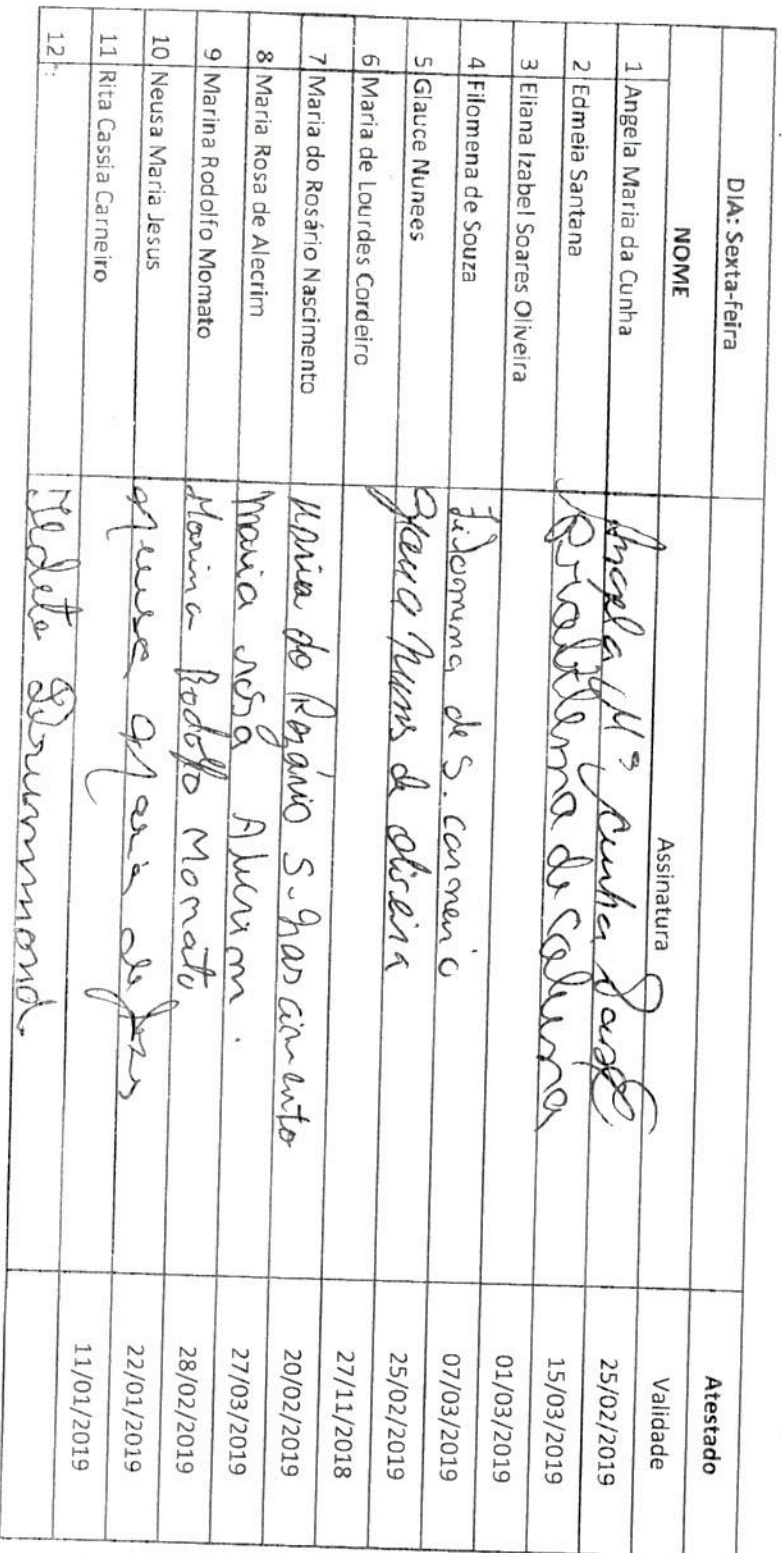 DIA: Sexta-feira Atestado
NOME Assinatura Validade
1 Angela Maria da Cunha Angela Mª Cunha 25/02/2019
2 Edmeia Santana 15/03/2019
3 Eliana Izabel Soares Oliveira 01/03/2019
4 Filomena de Souza Filomena de S. Carneiro 07/03/2019
5 Glauce Nunees Nunes de Oliveira 25/02/2019
6 Maria de Lourdes Cordeiro 27/11/2018
7 Maria do Rosário Nascimento Maria do Rosário S. Nascimento 20/02/2019
8 Maria Rosa de Alecrim Maria rosa Alecrim. 27/03/2019
9 Marina Rodolfo Momato Marina Rodolfo Momato 28/02/2019
10 Neusa Maria Jesus Neusa Maria de Jesus 22/01/2019
11 Rita Cassia Carneiro 11/01/2019
12 Drummond.